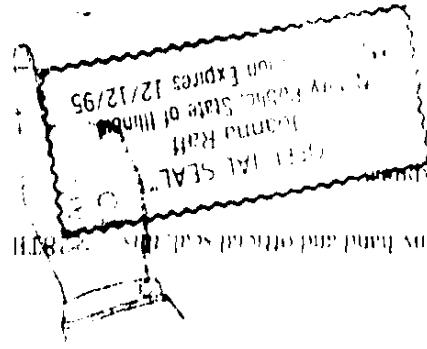 my hand and official seal, this 28TH
"OFFICIAL SEAL"
Joanna Raff
Notary Public, State of Illinois
Expires 12/12/95